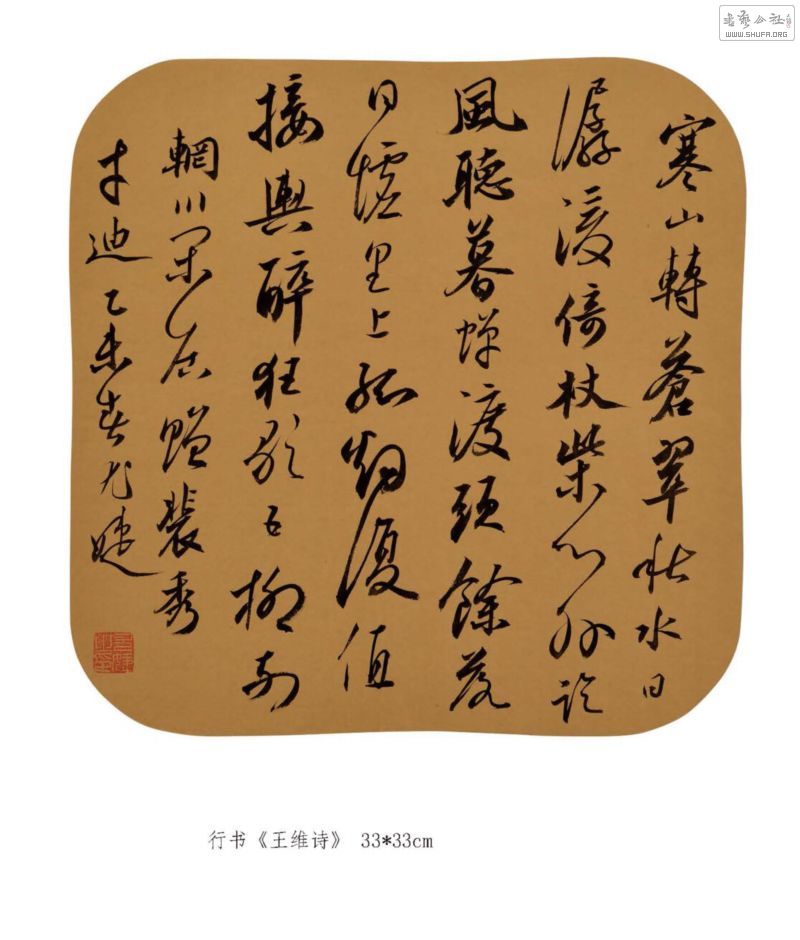 書藝公社
WWW.SHUFA.ORG
寒山轉蒼翠秋水日
潺湲倚杖柴門外臨
風聽暮蟬渡頭餘落
日墟里上孤烟復值
接輿醉狂歌五柳前
輞川閑居贈裴秀
才迪乙未春尤婕
行书《王维诗》 33*33cm